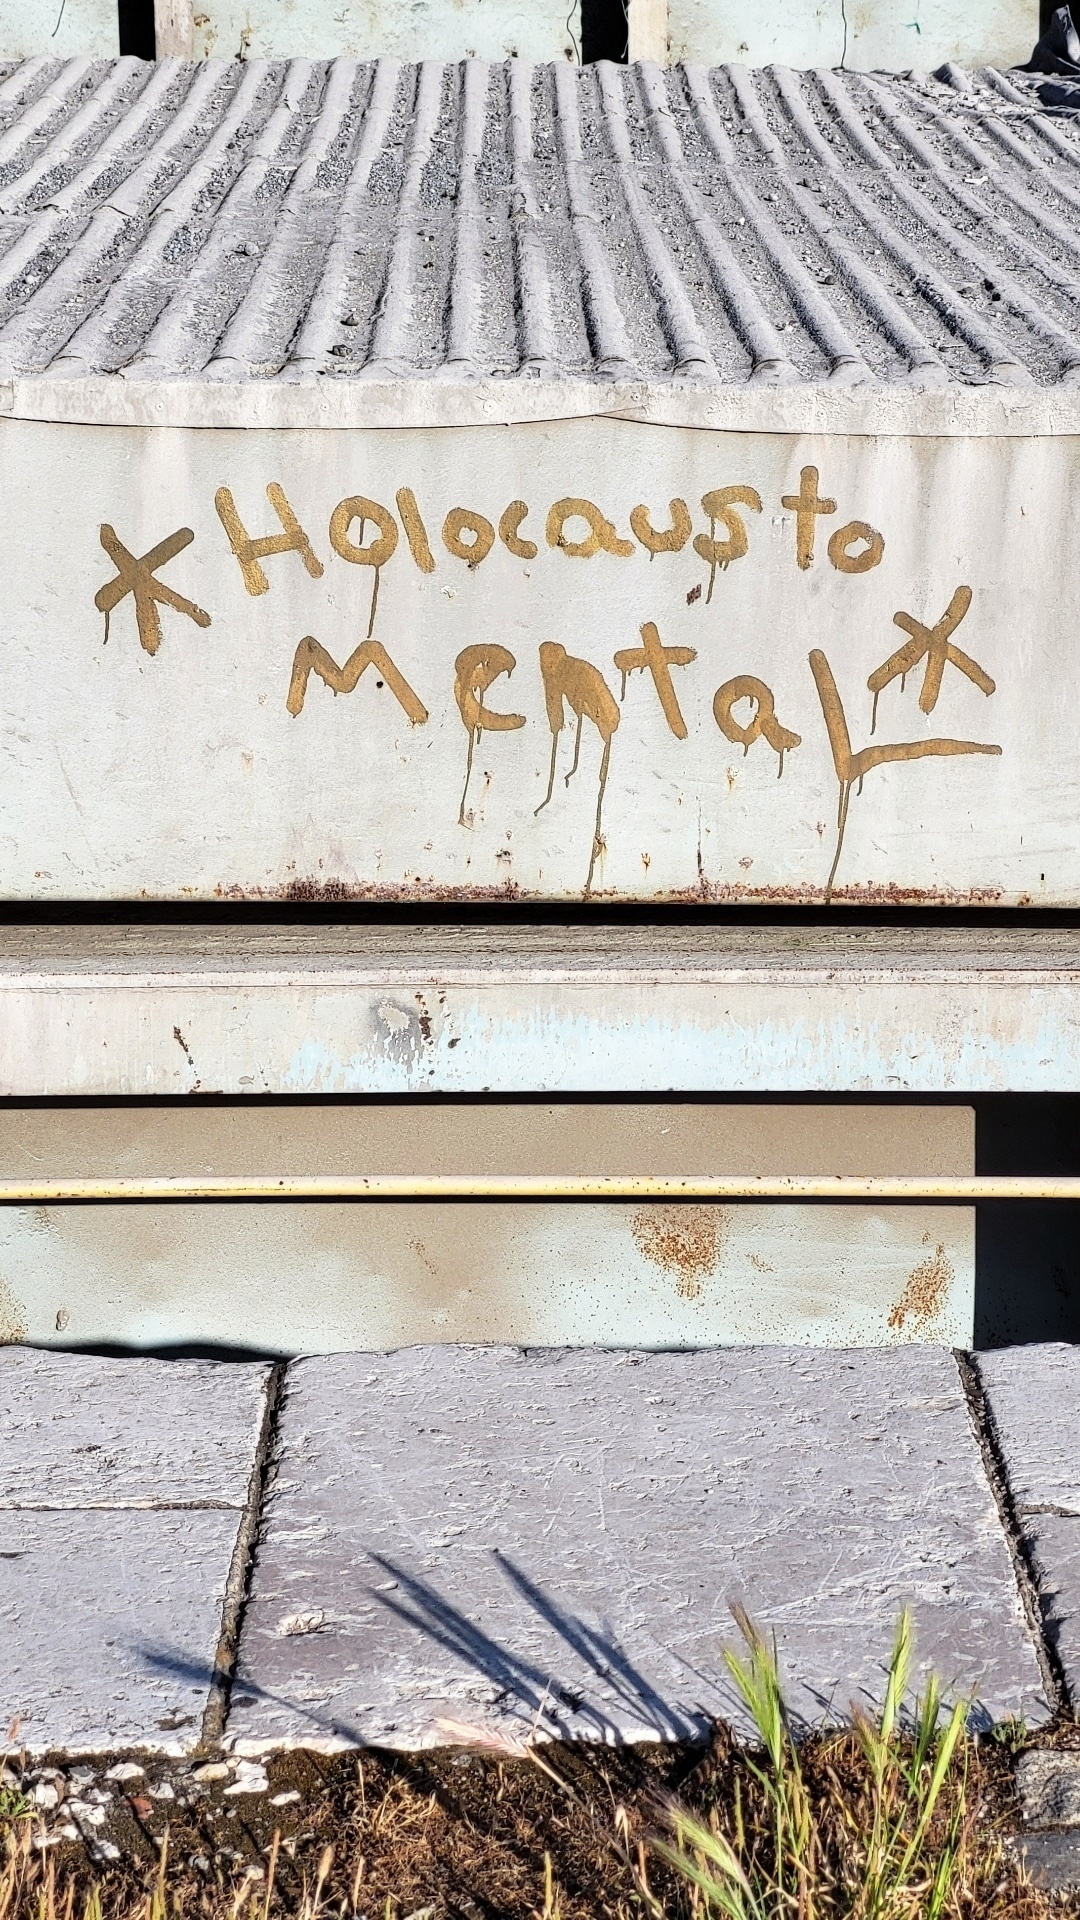 *Holocausto
mental*